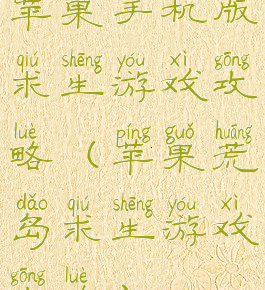 苹果手机版
qiú shēng yóu xì gōng
求生游戏攻
lüè píng guǒ huāng
略（苹果荒
dǎo qiú shēng yóu xì
岛求生游戏
gōng lüè